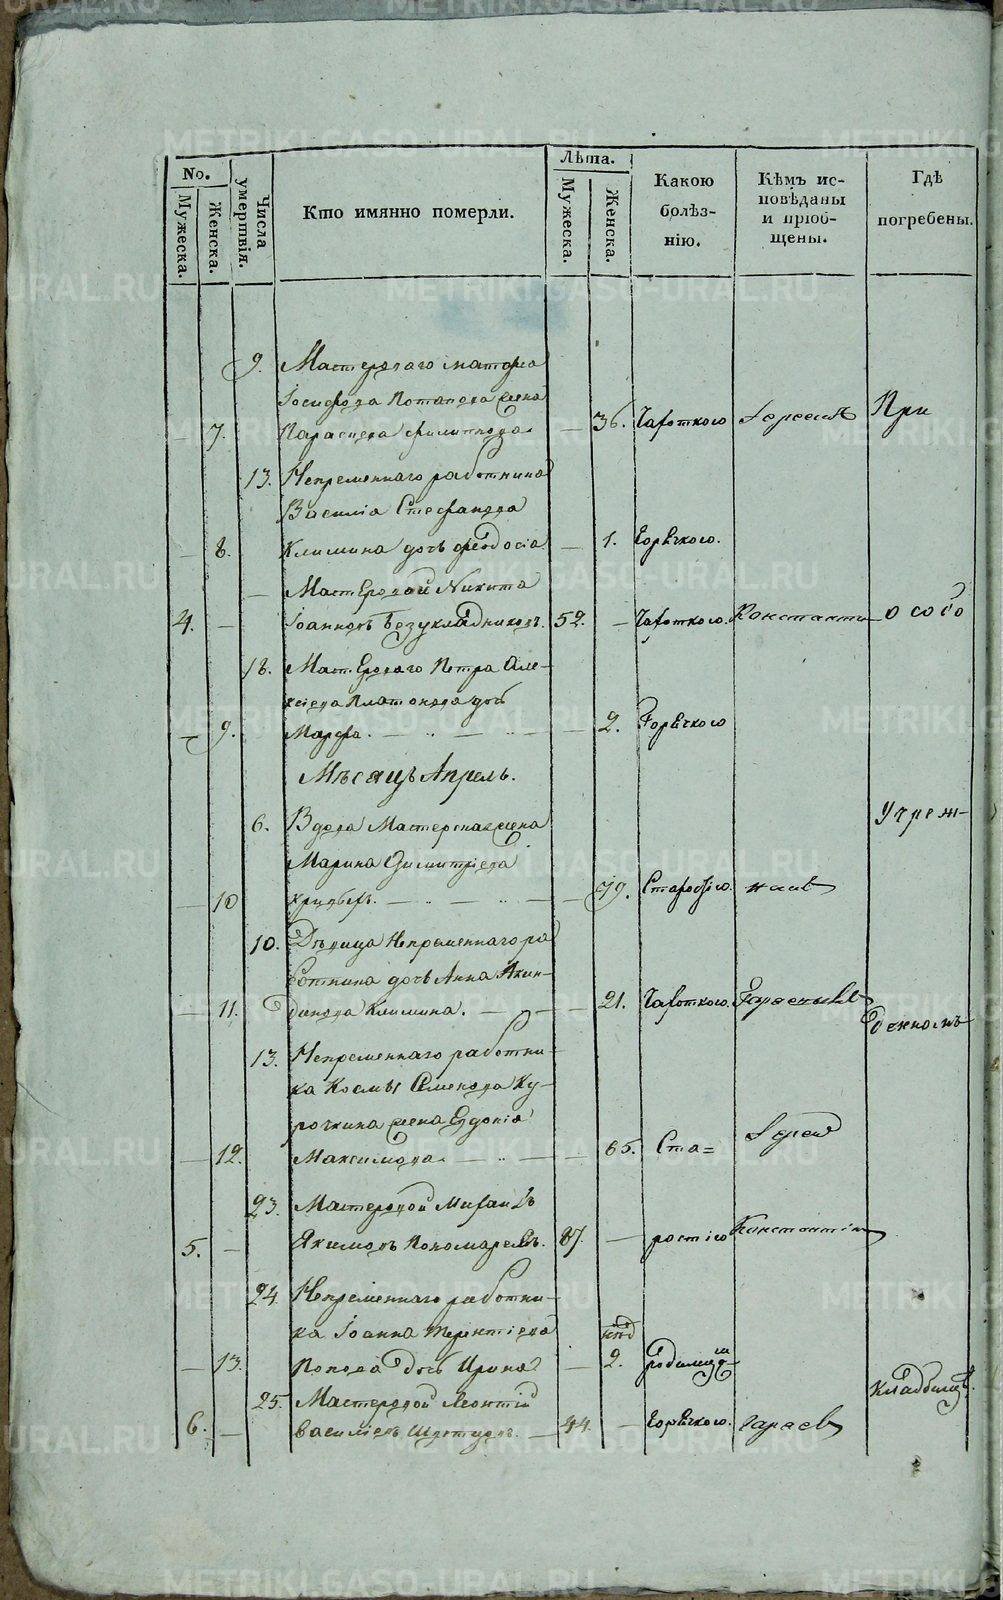 No.
Мужеска.
Женска.
Числа умертвія.
Кто имянно померли.
Лѣта.
Мужеска.
Женска.
Какою болѣзнію.
Кѣмъ исповѣданы и пріобщены.
Гдѣ погребены.
9. Мастероваго
Іосифова Потапова жена
7. Параскева Филиппова 36. Чахоткою Іереемъ При
13. Непременнаго работника
Василіа Стефанова
8. Климина дочь Феодосіа 1. Горячкою.
Мастеровой Никита
4. Іоанновъ Безукладниковъ. 52. Чахоткою. Константи особо
18. Мастероваго Петра Але-
ксіева Платонова дочь
9. Марфа. 2. Горячкою
Мѣсяцъ Апрель.
6. Вдова Мастерская жена Учреж-
Марина Димитріева
10 79. Старостію. номъ
10. Дѣвица Непременнаго ра
ботника дочь Анна Акин-
11. динова Климина. 21. Чахоткою. Гараевымъ
денномъ
13. Непременнаго работни-
ка Космы Семенова Ку-
рочкина жена Евдокіа
12. Максимова. 65. Ста= Іерей
23. Мастеровой Михаилъ
5. Якимовъ Пономаревъ. 87. ростію Константин
24. Непременнаго работни-
ка Іоанна Терентіева
нед
13. Попова дочь Ирина 2. родимцо
25. Мастеровой Леонтій кладбищѣ.
6. Василіевъ 44. Горячкою. Гараев
METRIKI.GASO-URAL.RU